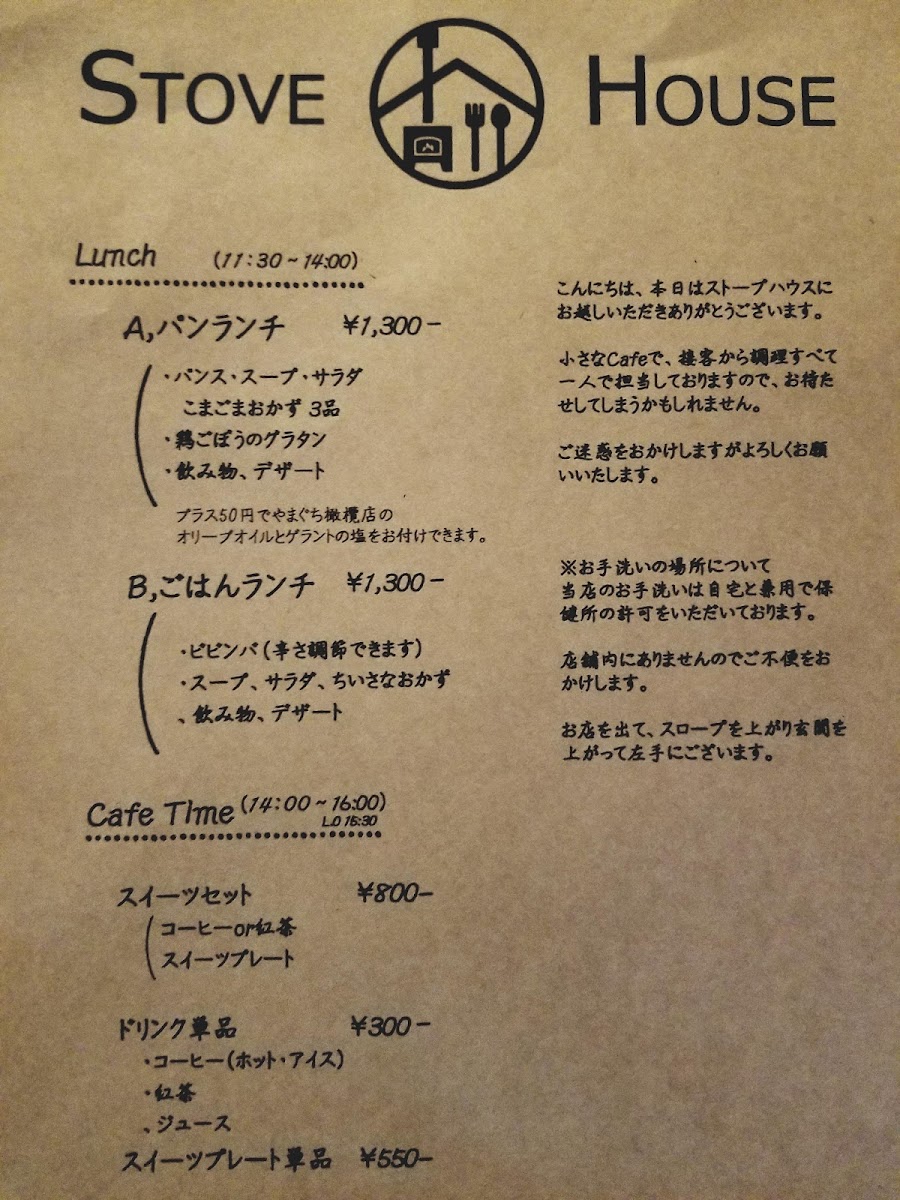 STOVE HOUSE
Lunch (11:30~14:00)
A,パンランチ ¥1,300-
・パンス・スープ・サラダ
こまごまおかず 3品
・鶏ごぼうのグラタン
・飲み物、デザート
プラス50円でやまぐち橄欖店の
オリーブオイルとゲラントの塩をお付けできます。
B,ごはんランチ ¥1,300-
・ビビンバ(辛さ調節できます)
・スープ、サラダ、ちいさなおかず
、飲み物、デザート
Cafe Time (14:00~16:00)
L.O 15:30
スイーツセット ¥800-
コーヒーor紅茶
スイーツプレート
ドリンク単品 ¥300-
・コーヒー(ホット・アイス)
・紅茶
、ジュース
スイーツプレート単品 ¥550-
こんにちは、本日はストーブハウスに
お越しいただきありがとうございます。
小さなCafeで、接客から調理すべて
一人で担当しておりますので、お待た
せしてしまうかもしれません。
ご迷惑をおかけしますがよろしくお願
いいたします。
※お手洗いの場所について
当店のお手洗いは自宅と兼用で保
健所の許可をいただいております。
店舗内にありませんのでご不便をお
かけします。
お店を出て、スロープを上がり玄関を
上がって左手にございます。